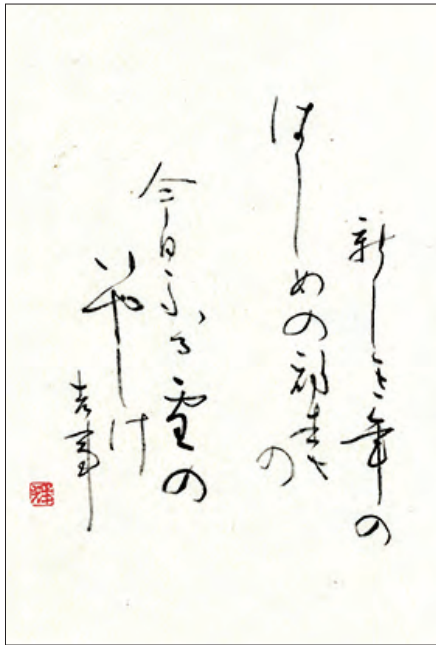 新しき年の
はしめの初春
の
今日ふる雪の
いやしけ
吉事